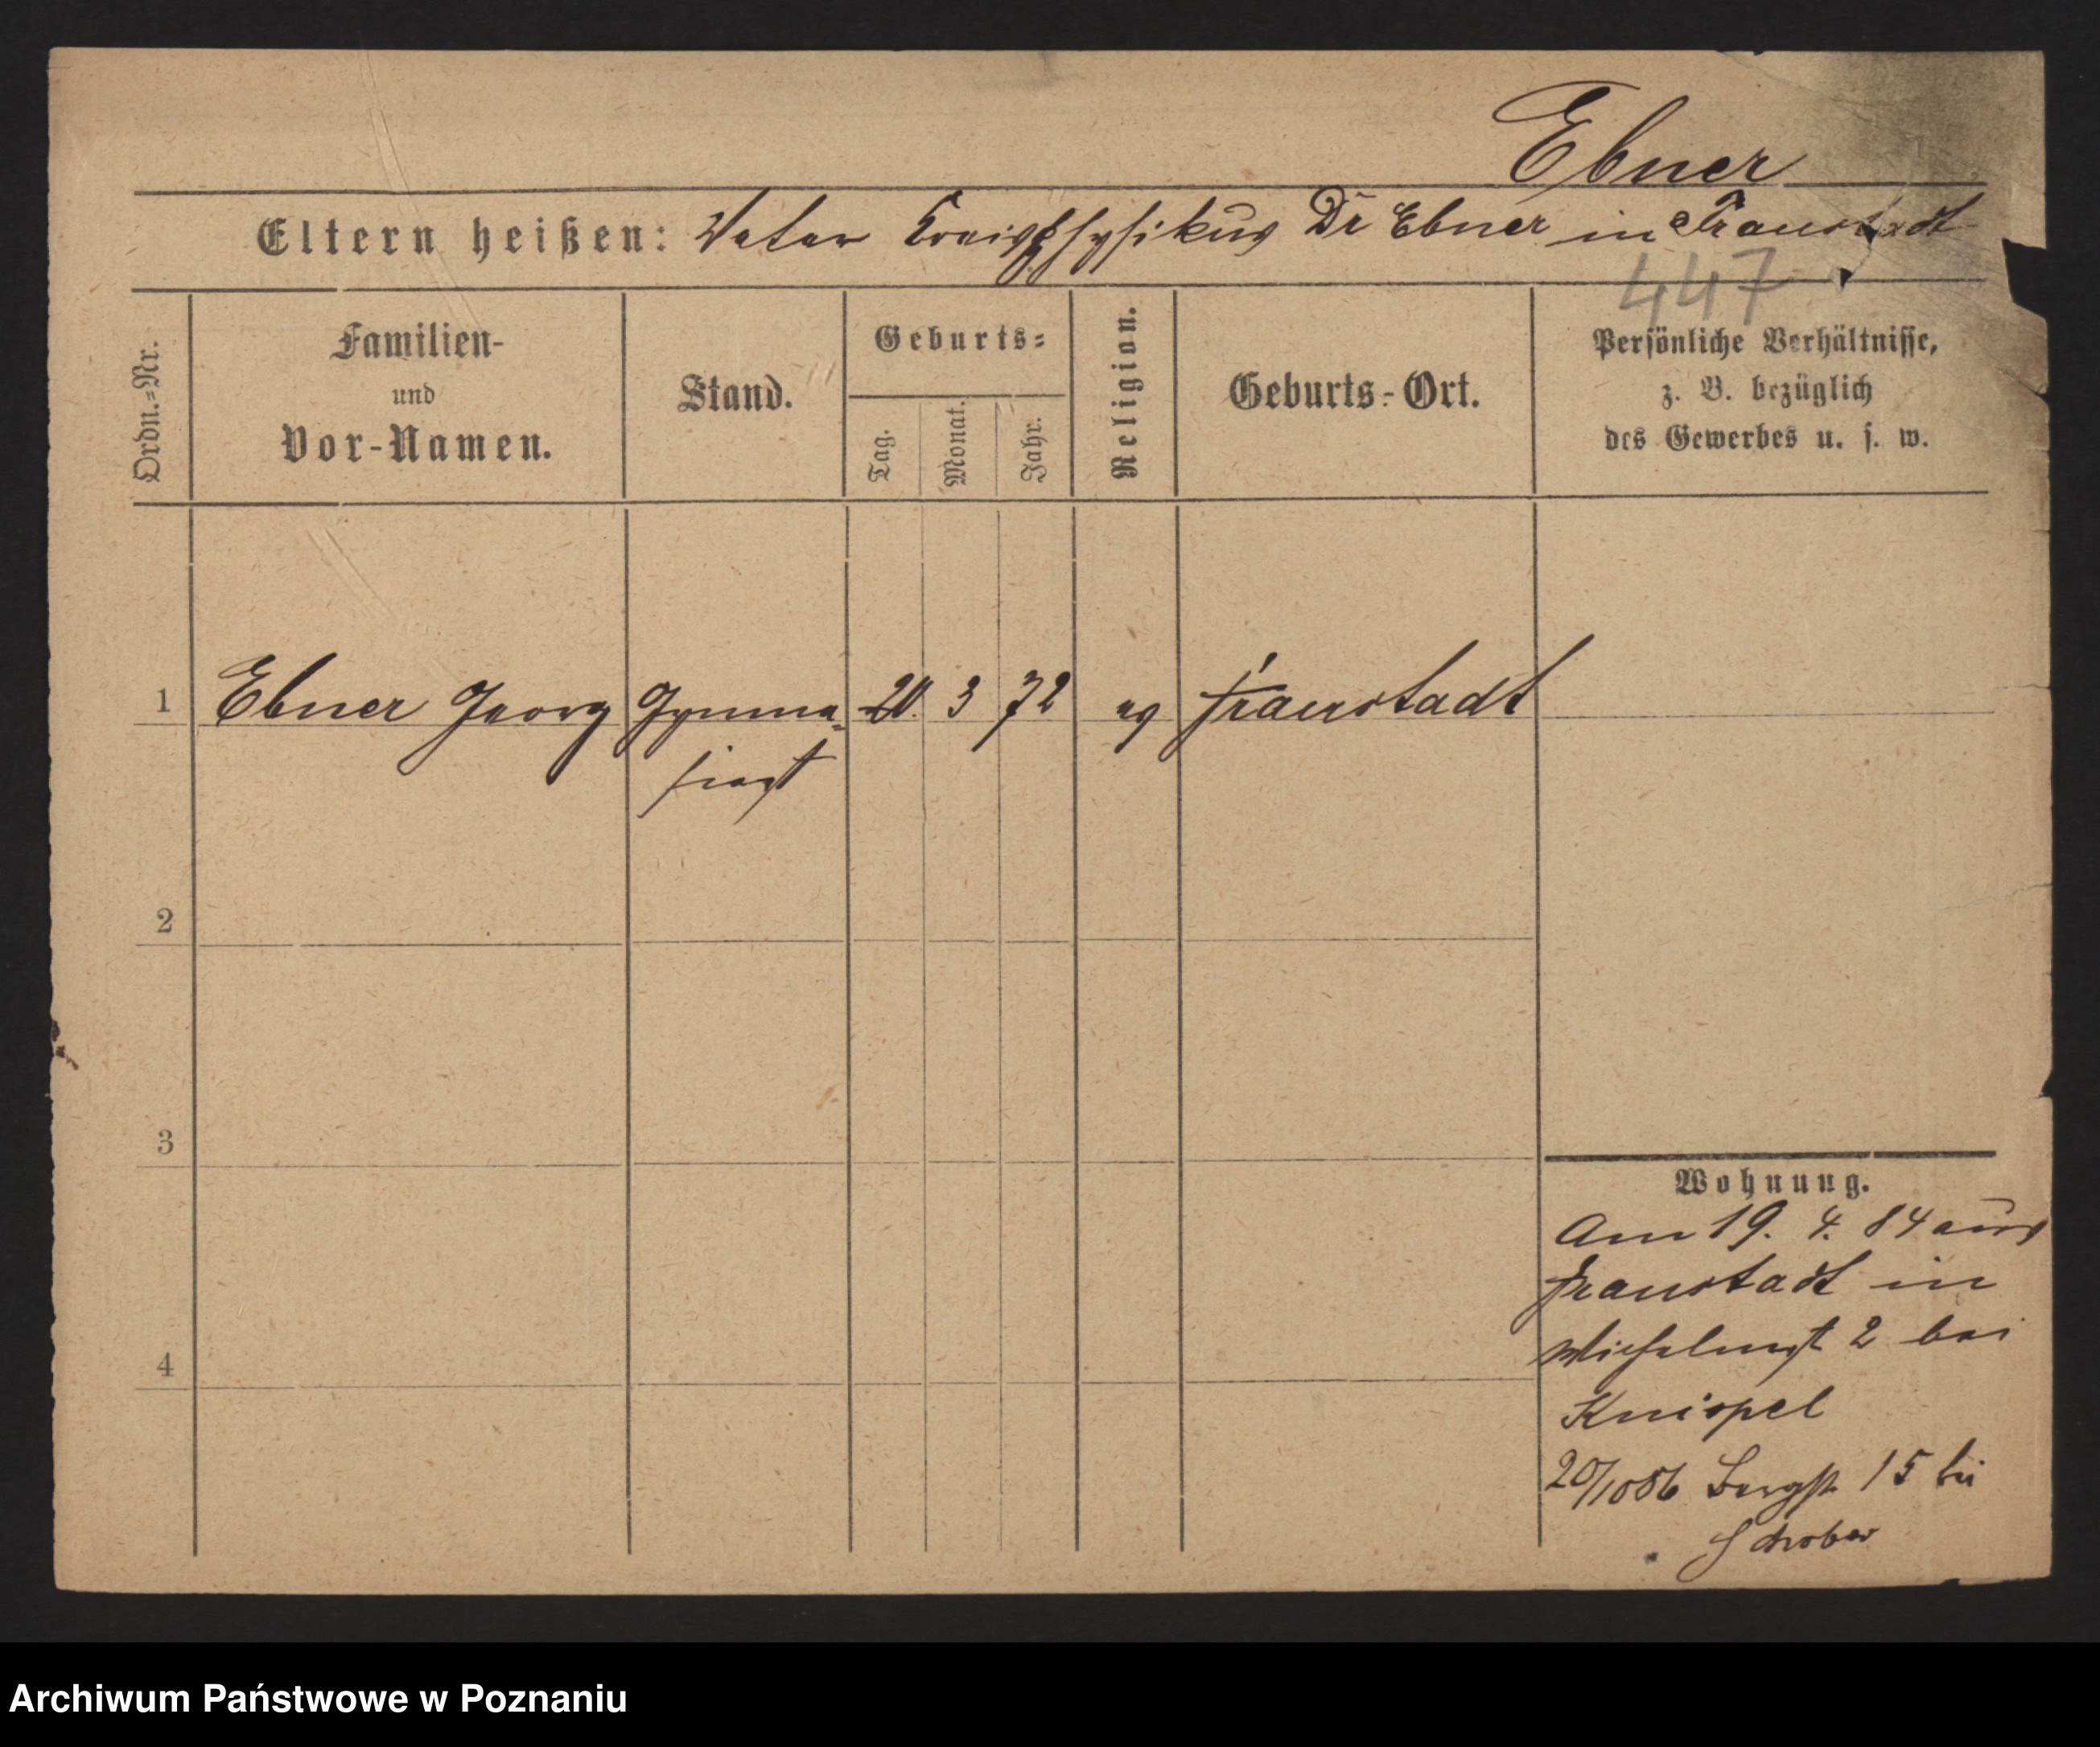 Ebner
Eltern heißen: Vater Kreisphysikus Dr Ebner in Fraustadt
447
Ordn.=Nr.
Familien-
und
Vor-Namen.
Stand.
Geburts=
Tag.
Monat.
Jahr.
Religion.
Geburts-Ort.
Persönliche Verhältnisse,
z. B. bezüglich
des Gewerbes u. s. w.
1 Ebner Georg Gymna= 20. 3 72 ev Fraustadt
siast
2
3
4
Wohnung.
Am 19. 4. 84 aus
Fraustadt in
2 bei
Knispel
20/10 86 Bergstr. 15 bei
Schober
Archiwum Państwowe w Poznaniu